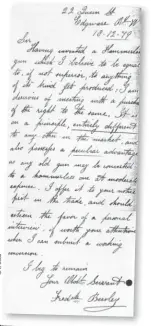 22 Queen St
Edgware Rd W
10-12-79
Sir
Having invented a Hammerless
gun which I believe to be equal
to, if not superior, to anything
of its kind yet produced, I am
desirous of meeting with a purchaser
of the right to the same. It is
on a principle, entirely different
to any other in the market and
also possess a peculiar advantage
as any old gun may be converted
to a hammerless one at moderate
expense. I offer it to your notice
first in the trade, and should
esteem the favor of a personal
interview, if worth your attention
when I can submit a working
I beg to remain
Your Obdt Servant
Fredck Beesley